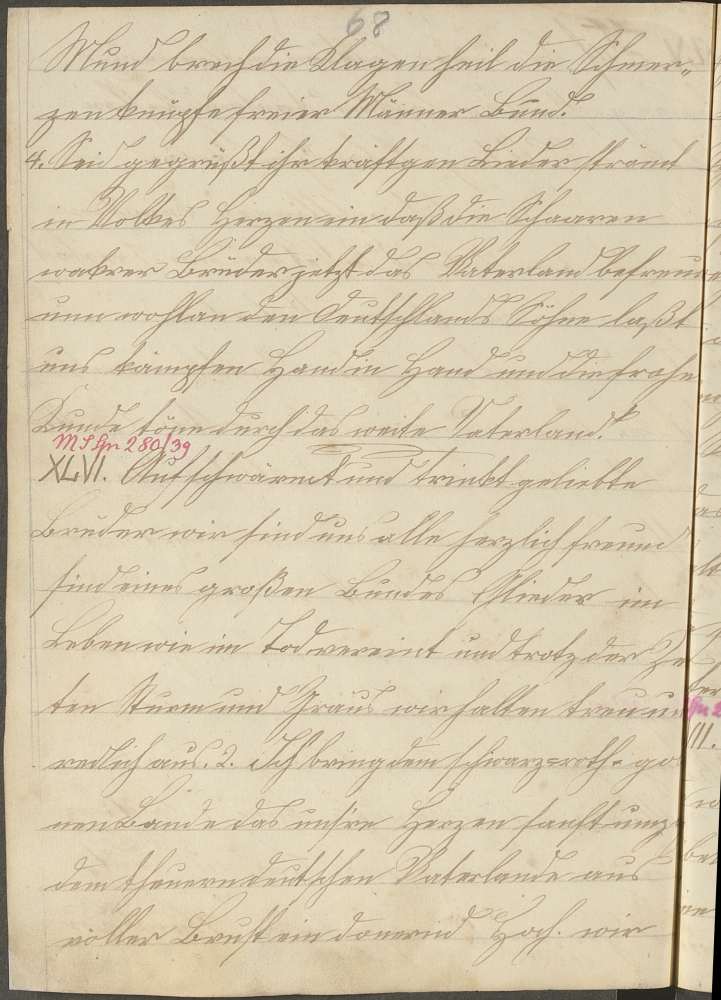 68
Mund brech die Klagen heil die Schmer-
zen knüpfe freier Männer Bund.
4. Seid gegrüßt ihr kräftgen Lieder strömt
in Volkes Herzen ein daß die Schaaren
wakrer Brüder jetzt das Vaterland befreun
nun wohlan den Deutschlands Söhne laßt
uns kämpfen Hand in Hand und die frohe
Kunde töne durch das weite Vaterland.
MS Hn 280/39
XLVI. Auf schwärmt und trinkt geliebte
Brüder wir sind uns alle herzlich freund
sind eines großen Bundes Glieder im
Leben wie im Tod vereint und trotz der Zei
ten Sturm und Graus wir halten treu un
redlich aus. 2. Ich bring dem schwarz=roth=gol
nen Bande das unsre Herzen sanft umz
dem theuern deutschen Vaterlande aus
voller Brust ein donernd Hoch. wir